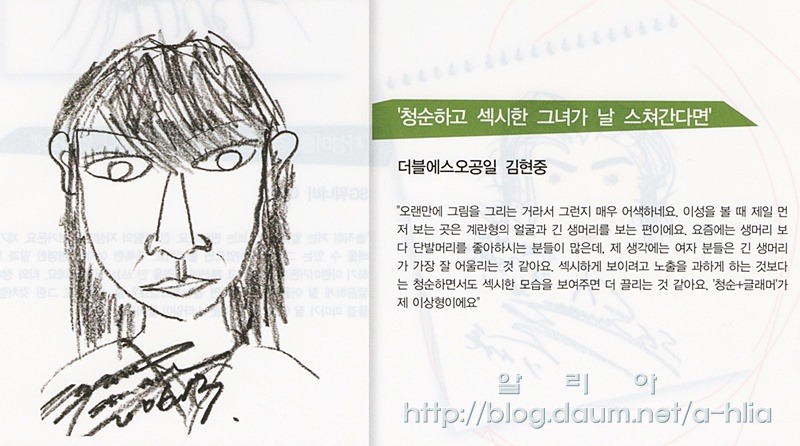 '청순하고 섹시한 그녀가 날 스쳐간다면'
더블에스오공일 김현중
"오랜만에 그림을 그리는 거라서 그런지 매우 어색하네요. 이성을 볼 때 제일 먼
저 보는 곳은 계란형의 얼굴과 긴 생머리를 보는 편이에요. 요즘에는 생머리 보
다 단발머리를 좋아하시는 분들이 많은데, 제 생각에는 여자 분들은 긴 생머리
가 가장 잘 어울리는 것 같아요. 섹시하게 보이려고 노출을 과하게 하는 것보다
는 청순하면서도 섹시한 모습을 보여주면 더 끌리는 것 같아요. '청순+글래머'가
제 이상형이에요"
알 리 아
http://blog.daum.net/a-hlia